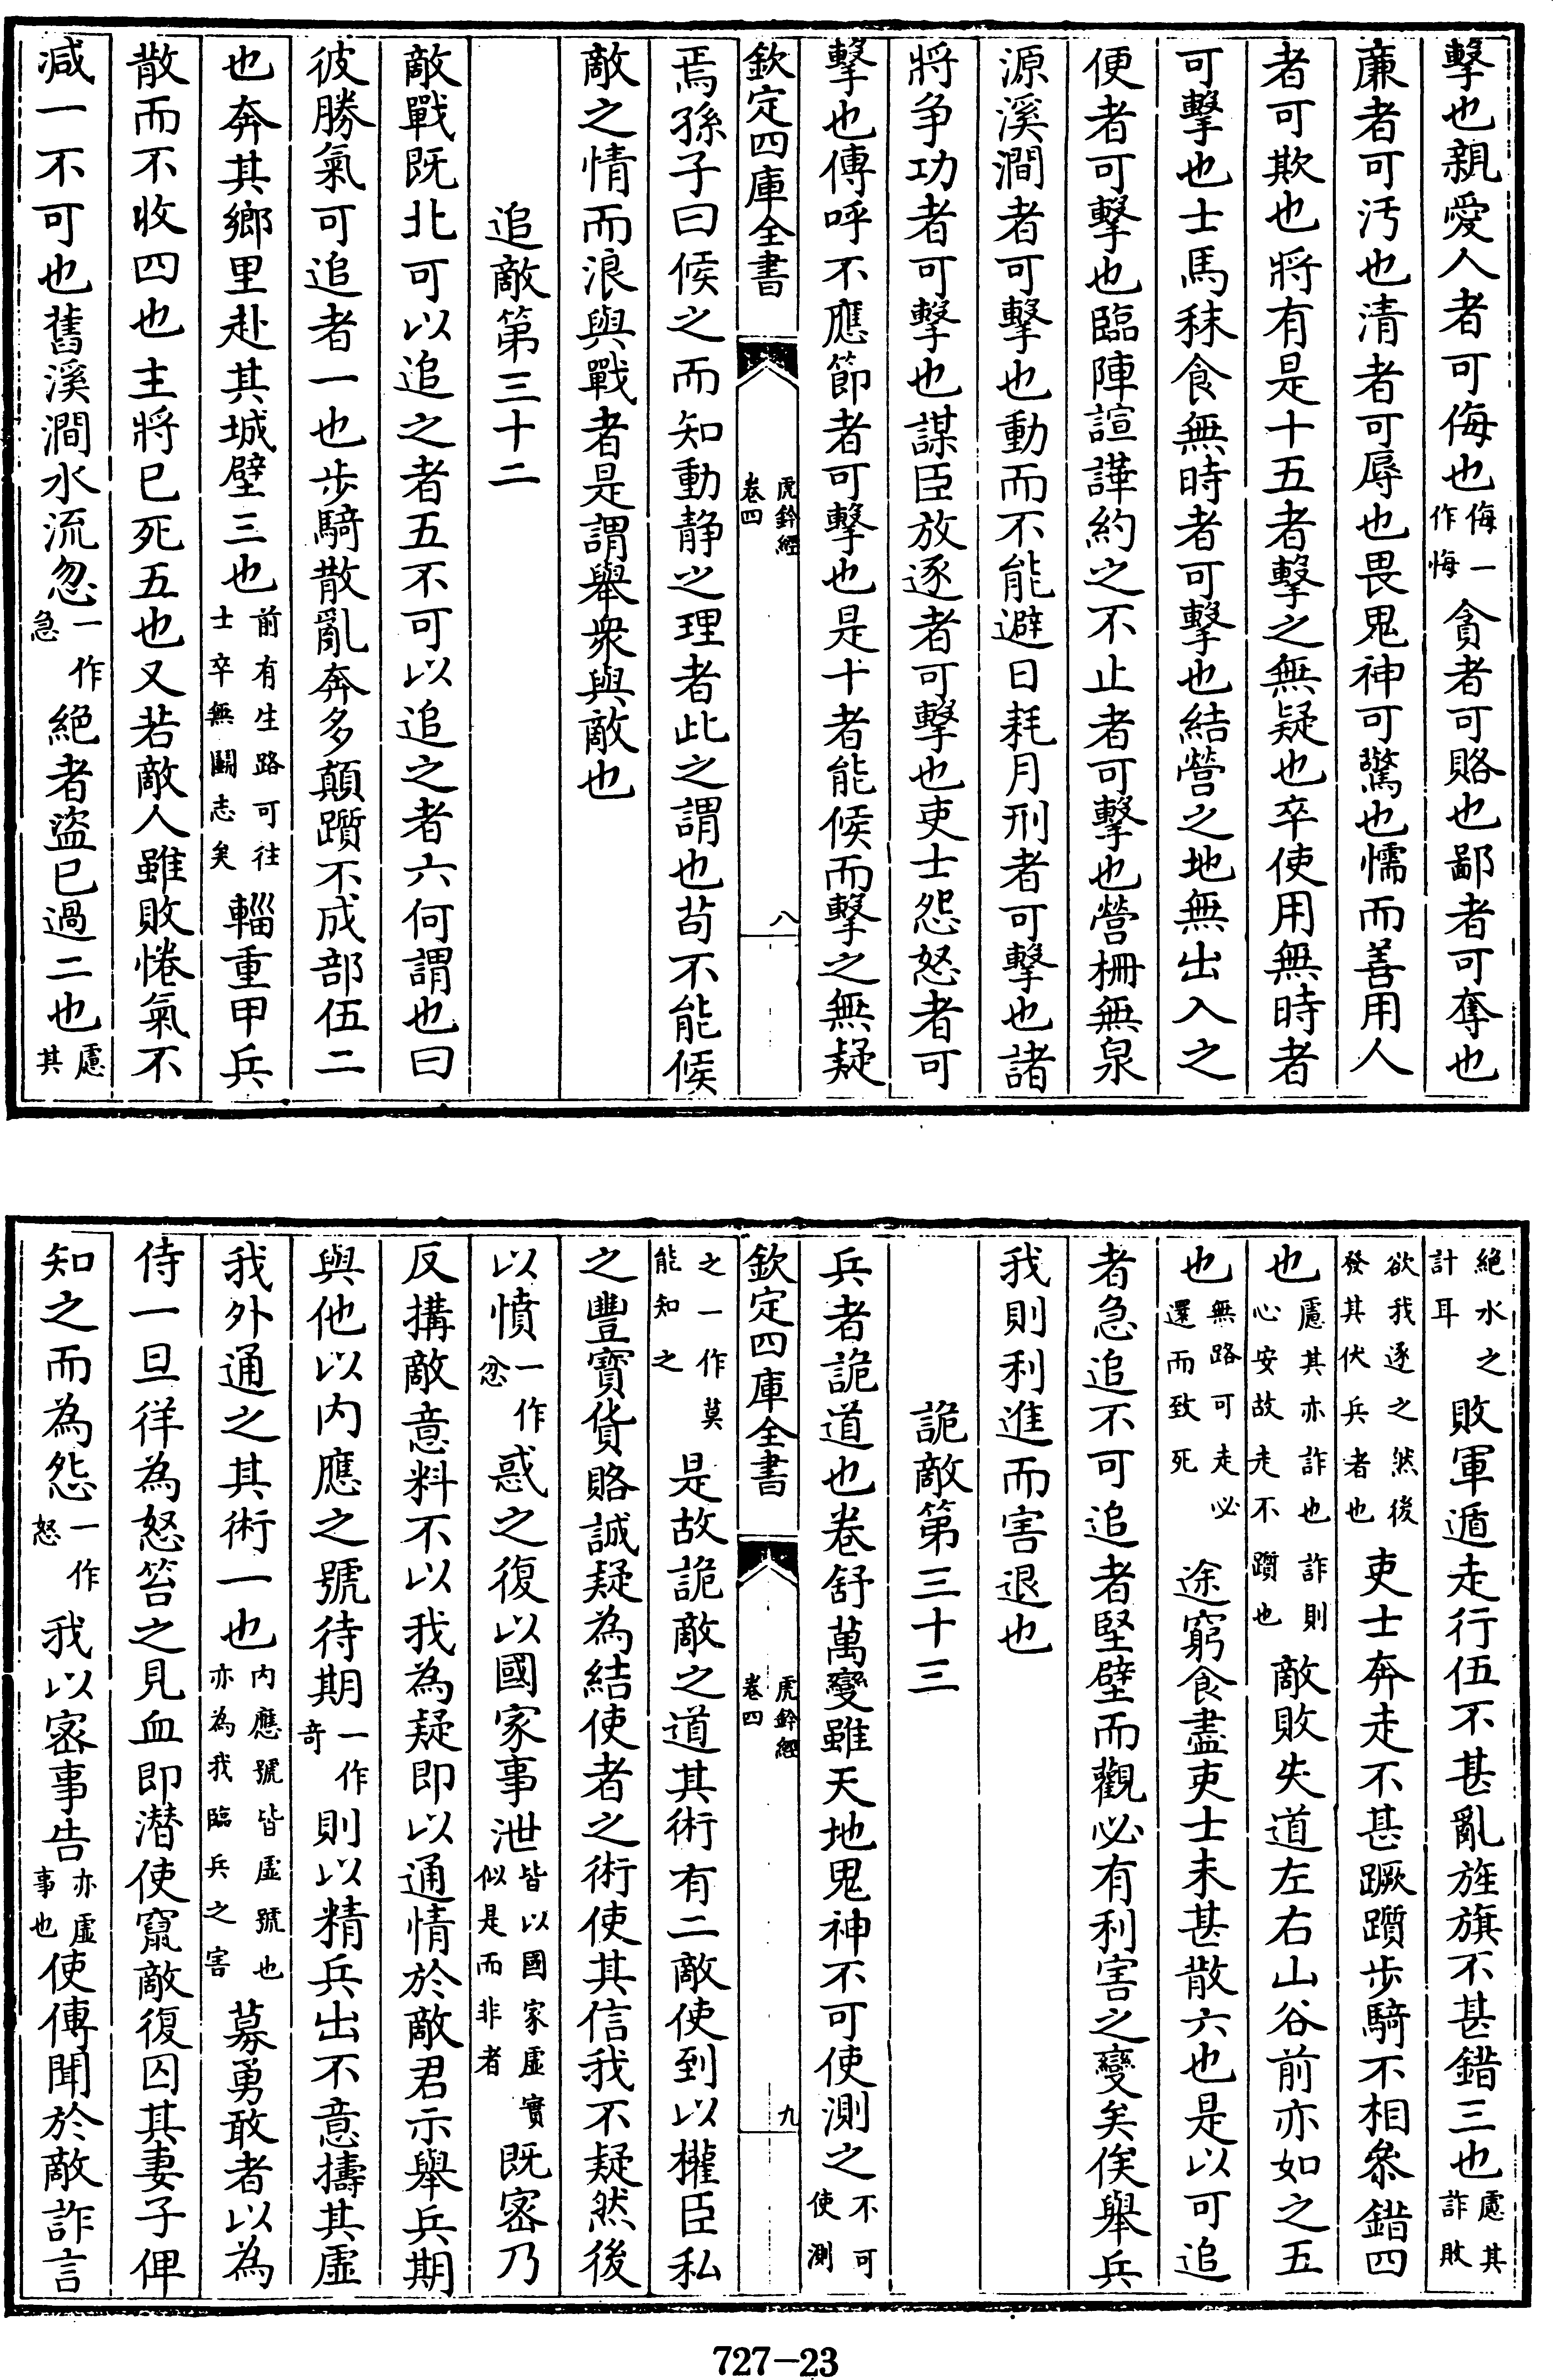 擊也親愛人者可侮也侮一作悔貪者可賂也鄙者可奪也
廉者可汚也清者可辱也畏鬼神可驚也懦而善用人
者可欺也將有是十五者擊之無疑也卒使用無時者
可擊也士馬秣食無時者可擊也結營之地無出入之
便者可擊也臨陣諠譁約之不止者可擊也營柵無泉
源溪澗者可擊也動而不能避日耗月刑者可擊也諸
將争功者可擊也謀臣放逐者可擊也吏士怨怒者可
擊也傳呼不應節者可擊也是十者能候而擊之無疑
欽定四庫全書 虎鈐經卷四 八
焉孫子曰候之而知動静之理者此之謂也苟不能候
敵之情而浪與戰者是謂舉衆與敵也
追敵第三十二
敵戰既北可以追之者五不可以追之者六何謂也曰
彼勝氣可追者一也步騎散亂奔多顛躓不成部伍二
也奔其鄉里赴其城壁三也前有生路可往士卒無鬭志矣輜重甲兵
散而不收四也主將已死五也又若敵人雖敗惓氣不
減一不可也舊溪澗水流忽一作急絕者盜已過二也慮其
絕水之計耳敗軍遁走行伍不甚亂旌旗不甚錯三也慮其詐敗
欲我逐之然後發其伏兵者也吏士奔走不甚蹶躓步騎不相叅錯四
也慮其亦詐也詐則心安故走不躓也敵敗失道左右山谷前亦如之五
也無路可走必還而致死途窮食盡吏士未甚散六也是以可追
者急追不可追者堅壁而觀必有利害之變矣俟舉兵
我則利進而害退也
詭敵第三十三
兵者詭道也卷舒萬變雖天地鬼神不可使測之不可使測
欽定四庫全書 虎鈐經卷四 九
之一作莫能知之是故詭敵之道其術有二敵使到以權臣私
之豐寳貨賂誠疑為結使者之術使其信我不疑然後
以憤一作忿惑之復以國家事泄皆以國家虚實似是而非者既宻乃
反搆敵意料不以我為疑即以通情於敵君示舉兵期
與他以内應之號待期一作奇則以精兵出不意擣其虚
我外通之其術一也内應號皆虚號也亦為我臨兵之害募勇敢者以為
侍一旦徉為怒笞之見血即潜使竄敵復囚其妻子俾
知之而為怨一作怒我以宻事告亦虚事也使傳聞於敵詐言
727-23